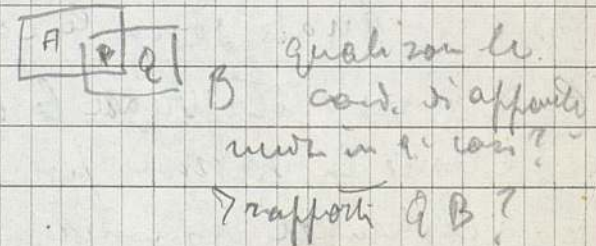 A P Q quali son le
B cond. di apparte
in q. casi ?
rapporti Q B ?